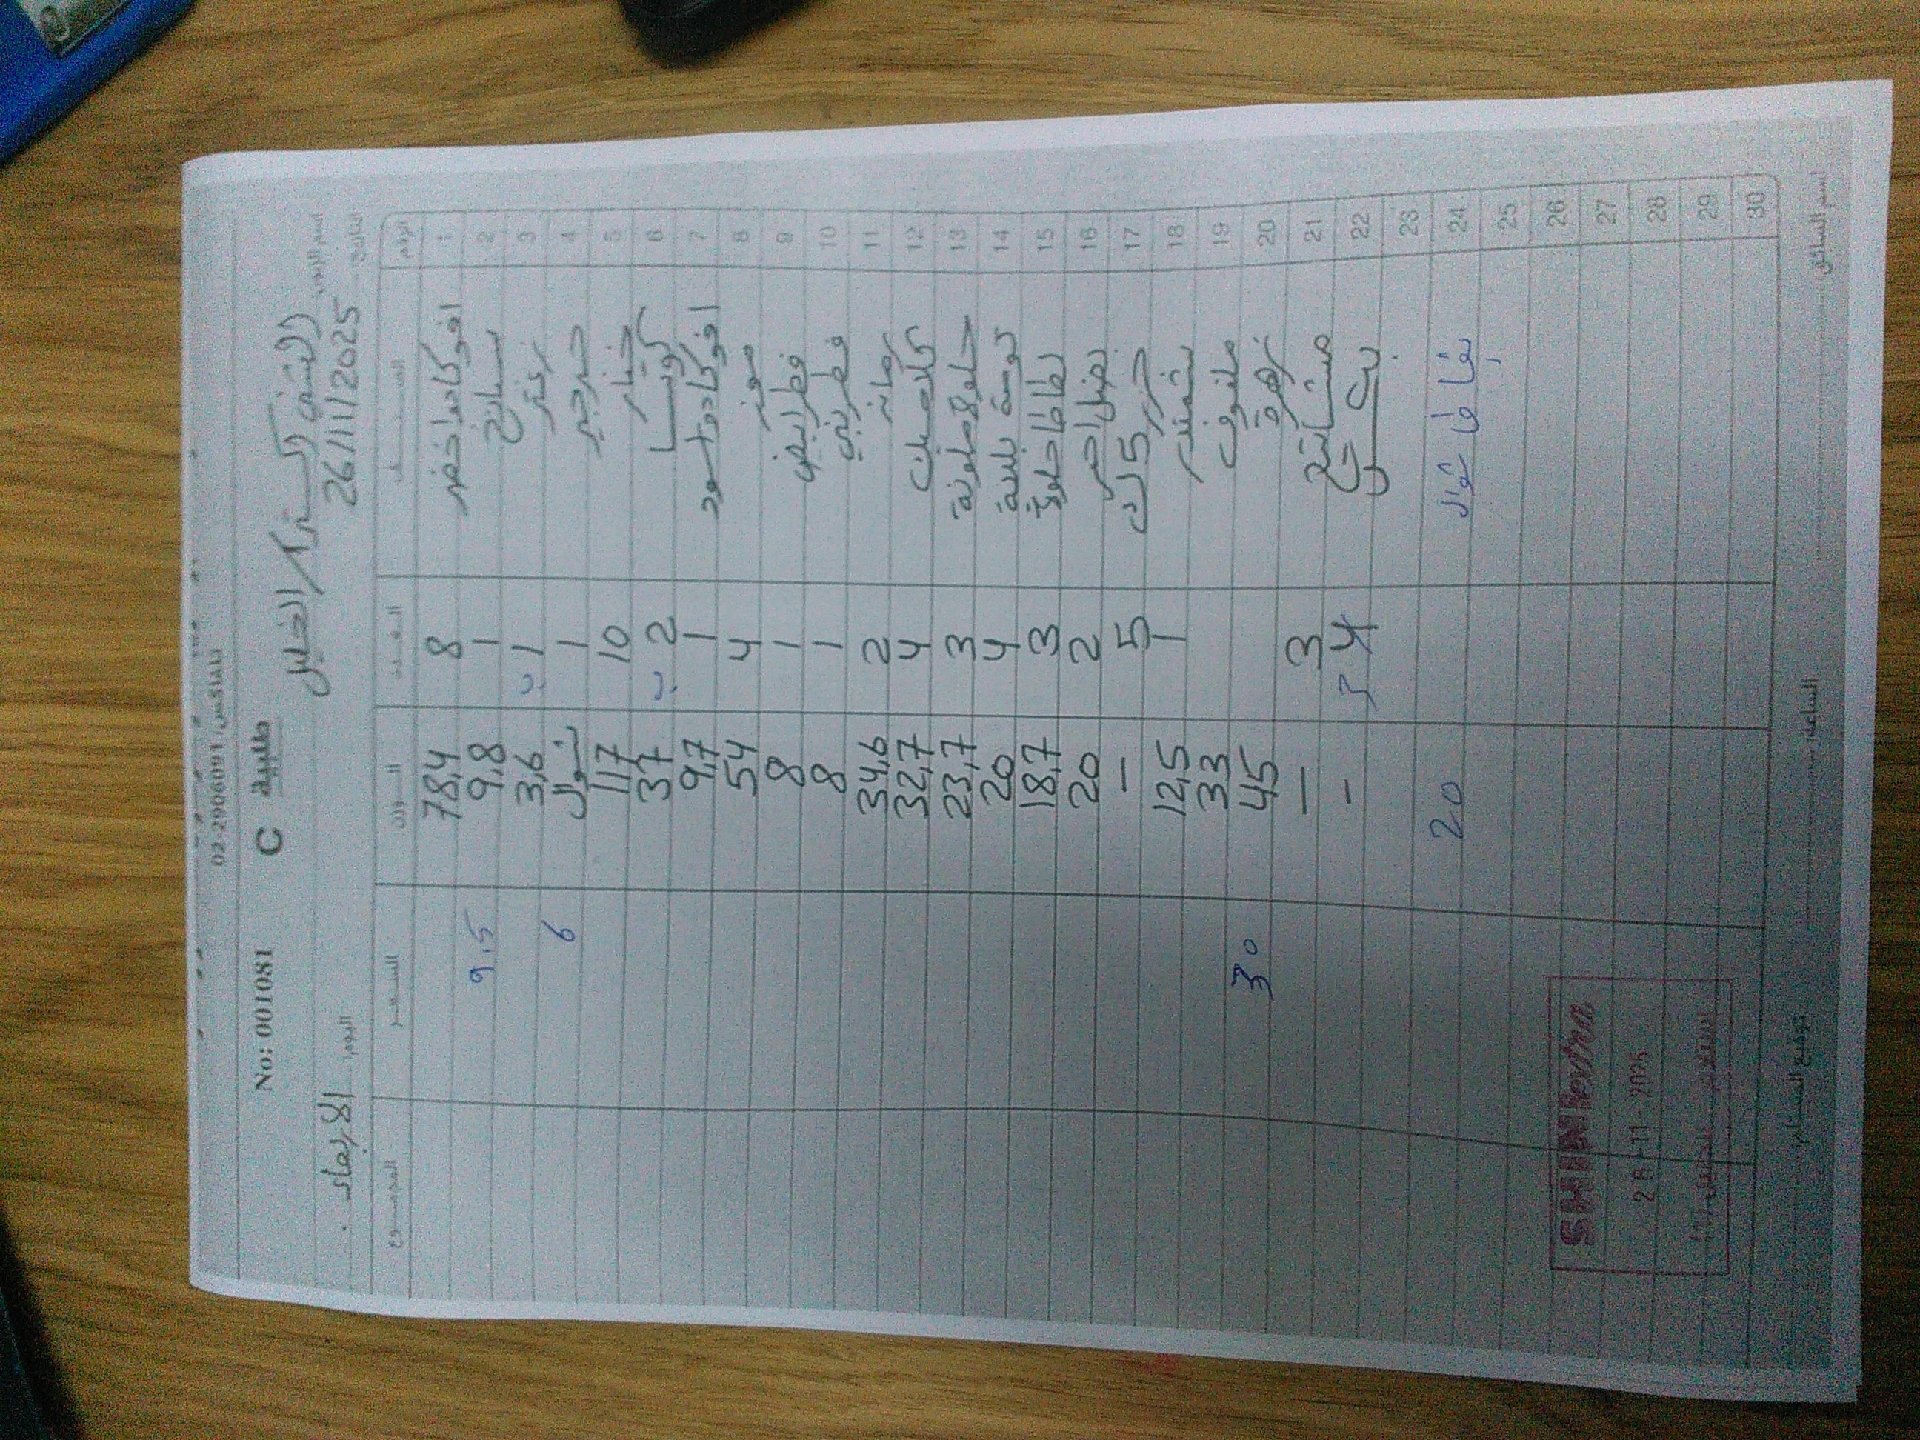 تلفاكس: 02-2906091
No: 0001081 C طلبية
اسم الزبون: الشني اكسترا / الخليل
اليوم: الاربعاء التاريخ: 26/11/2025
الرقم الصنف العدد الوزن السعر المجموع
1 افوكادو اخضر 8 78,4
2 سبانخ 1 9,8 9,5
3 1 3,6
4 جرجير 1 شوال 6
5 خيار 10 117
6 كوسا 2 37
7 افوكادو اسود 1 9,7
8 موز 4 54
9 فطر ابيض 1 8
10 فطر بني 1 8
11 رمانه 2 34,6
12 كلامنتينا 4 32,7
13 3 23,7
14 بلدية 4 20
15 بطاطا حلوة 3 18,7
16 بصل احمر 2 20
17 جزر 5 ك 5 —
18 شمندر 1 12,5
19 ملفوف 33
20 زهرة 45 30
21 3 —
22 4 3 -
23
24 بطاطا شوال 20
25
26
27
28
29
30
SHINI extra
26-11-2025
اسم السائق الساعة توقيع المستلم